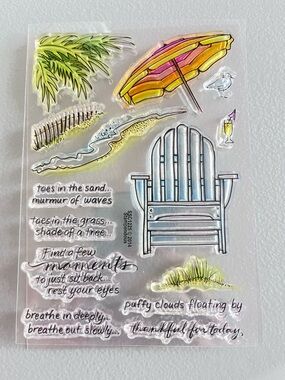 toes in the sand...
murmur of waves
toes in the grass...
shade of a tree
Find a few
moments
to just sit back
rest your eyes
breathe in deeply...
breathe out slowly...
puffy clouds floating by
thankful for today,